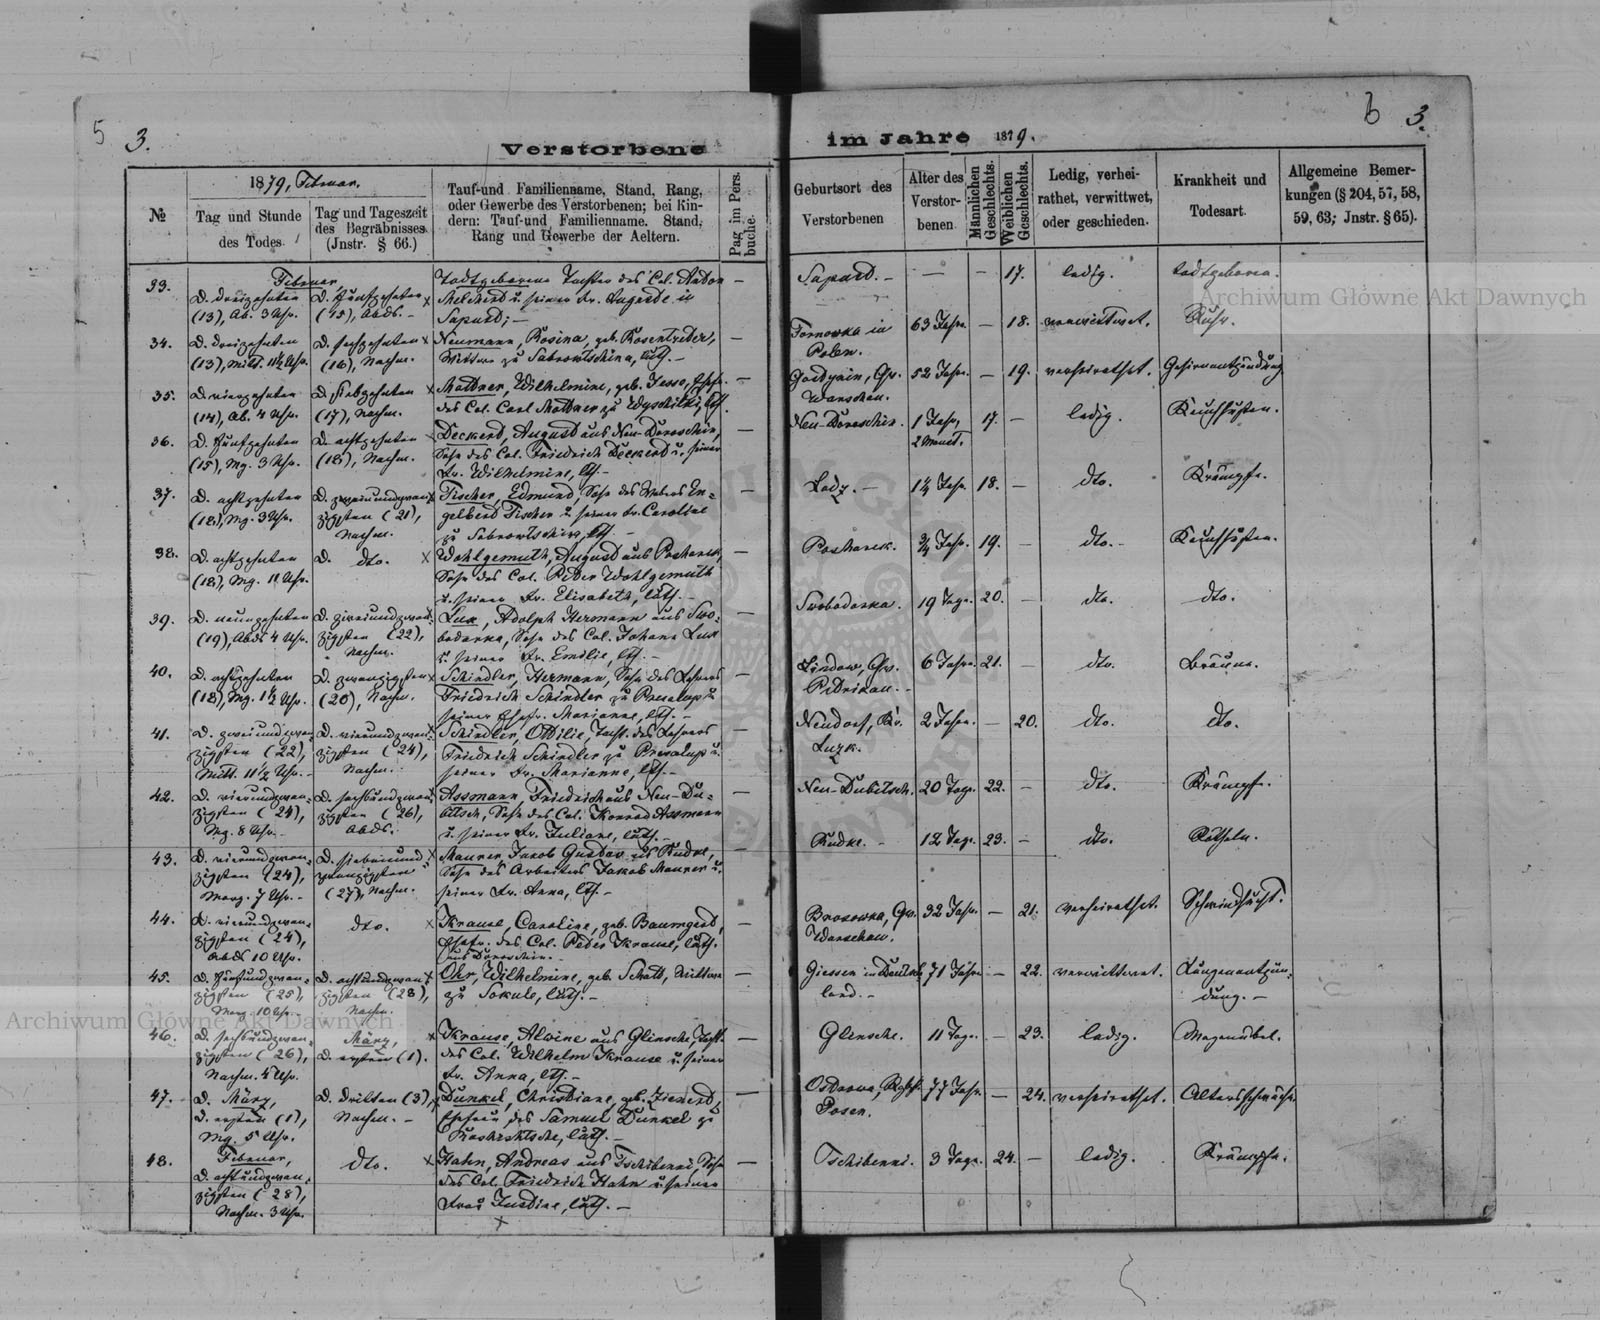 5 3.
Verstorbene
im Jahre 1879.
6 3.
№
1879, Februar.
Tag und Stunde
des Todes.
Tag und Tageszeit
des Begräbnisses.
(Jnstr. § 66.)
Tauf-und Familienname, Stand, Rang,
oder Gewerbe des Verstorbenen; bei Kin-
dern: Tauf-und Familienname, Stand,
Rang und Gewerbe der Aeltern.
Pag im Pers.
buche.
Geburtsort des
Verstorbenen
Alter des
Verstor-
benen
Männlichen
Geschlechts.
Weiblichen
Geschlechts.
Ledig, verhei-
rathet, verwittwet,
oder geschieden.
Krankheit und
Todesart.
Allgemeine Bemer-
kungen (§ 204, 57, 58,
59, 63; Jnstr. § 65).
33.
Februar,
D. dreizehnten
(13), Ab. 3 Uhr.
D. fünfzehnten
(15), Abds. -
Todtgeborene Tochter des Col. Anton
u. seiner Fr. Auguste in
Sapust; -
-
Sapust. -
- - 17. ledig. todtgeboren.
34.
D. dreizehnten
(13), Mitt. 11½ Uhr.
D. sechzehnten
(16), Nachm.
Neumann, Rosina, geb. Rosentreter,
Wittwe zu Sabrowtschina, luth. -
Tornowka in
Polen.
63 Jahre. - 18. verwittwet. Ruhr.
35.
D. vierzehnten
(14), Ab. 4 Uhr.
D. siebzehnten
(17), Nachm.
Mattner, Wilhelmine, geb. Jesse, Ehefr.
des Col. Carl Mattner zu
-
Gv.
Warschau.
52 Jahre. - 19. verheirathet. Gehirnentzündung
36.
D. fünfzehnten
(15), Mg. 3 Uhr.
D. achtzehnten
(18), Nachm.
Deckert, August aus Neu-Doroschin,
Sohn des Col. Friedrich Deckert u. seiner
Fr. Wilhelmine, lth. -
-
Neu-Doroschin. 1 Jahr,
2 Monat. 17. - ledig. Keuchhusten.
37.
D. achtzehnten
(18), Mg. 3 Uhr.
D. zweiundzwan-
zigsten (21),
Nachm.
Tischer, Edmund, Sohn des Webers En-
gelbert Tischer u. seiner Fr. Caroline
zu Sabrowtschina, lth. -
-
Lodz. - 1¼ Jahr. 18. - dto. Krämpfe.
38.
D. achtzehnten
(18), Mg. 11 Uhr.
D. dto.
Wohlgemuth, August aus Posharek,
Sohn des Col. Peter Wohlgemuth
u. seiner Fr. Elisabeth, luth. -
-
Posharek. ¾ Jahr. 19. - dto. - Keuchhusten.
39.
D. neunzehnten
(19), Abds 4 Uhr.
D. zweiundzwan-
zigsten (22),
Nachm.
Lux, Adolph Hermann aus Swo-
bodarka, Sohn des Col. Johann Lux
u. seiner Fr. Emilie, lth. -
-
Swobodarka. 19 Tage. 20. - dto. dto.
40.
D. achtzehnten
(18), Mg. 1½ Uhr.
D. zwanzigsten
(20), Nachm.
Schindler, Hermann, Sohn des Lehrers
Friedrich Schindler zu u.
seiner Ehefr. Marianne, lth. -
-
Lindow, Gv.
Petrikau. -
6 Jahre. 21. - dto. Bräune.
41.
D. zweiundzwan-
zigsten (22),
Mitt. 11½ Uhr. -
D. vierundzwan-
zigsten (24),
Nachm.
Schindler, Ottilie, Tocht. des Lehrers
Friedrich Schindler zu u.
seiner Fr. Marianne, lth. -
-
Neudorf, Kr.
Luzk.
2 Jahre. - 20. dto. dto.
42.
D. vierundzwan-
zigsten (24),
Mg. 8 Uhr. -
D. sechsundzwan-
zigsten (26),
Abds.
Assmann, Friedrich aus Neu-Du-
bitsch, Sohn des Col. Konrad Assmann
u. seiner Fr. Juliane, luth. -
-
Neu-Dubitsch. 20 Tage. 22. - dto. Krämpfe.
43.
D. vierundzwan-
zigsten (24),
Morg. 7 Uhr. -
D. siebenund-
zwanzigsten
(27), Nachm.
Maurer, Jakob Gustav aus Rudke,
Sohn des Arbeiters Jakob Maurer u.
seiner Fr. Anna, lth. -
-
Rudke. - 12 Tage. 23. - dto. Rötheln.
44.
D. vierundzwan-
zigsten (24),
Abds 10 Uhr.
dto.
Krause, Caroline, geb. Baumgard,
Ehefr. des Col. Peter Krause, luth.
aus Doroschin. -
-
Brosowka, Gv.
Warschau.
32 Jahr. - 21. verheirathet. Schwindsucht.
45.
D. fünfundzwan-
zigsten (25),
Morg. 10 Uhr. -
D. achtundzwan-
zigsten (28),
Nachm.
Ohr, Wilhelmine, geb. Schatt, Wittwe
zu Sokule, luth. -
-
Giessen in Deutsch-
land. -
71 Jahre - 22. verwittwet. Lungenentzün-
dung. -
46.
D. sechsundzwan-
zigsten (26),
Nachm. 4 Uhr.
März,
D. ersten (1).
Krause, Alvine aus Glinsche, Tocht.
des Col. Wilhelm Krause u. seiner
Fr. Anna, lth. -
-
Glinsche. 11 Tage. - 23. ledig. Magenübel.
47.
D. März,
D. ersten (1),
Mg. 5 Uhr.
D. dritten (3),
Nachm. -
Dunkel, Christiane, geb. Zienert,
Ehefrau des Samuel Dunkel zu
luth. -
-
Ostrowo,
Posen.
77 Jahr. - 24. verheirathet. Altersschwäche.
48.
Februar,
D. achtundzwan-
zigsten (28),
Nachm. 3 Uhr.
dto.
Hahn, Andreas aus Tschibenni, Sohn
des Col. Friedrich Hahn u. seiner
Frau Justine, luth. -
-
Tschibenni. 3 Tage. 24. - ledig. Krämpfe.
Archiwum Główne Akt Dawnych
Archiwum Główne Akt Dawnych